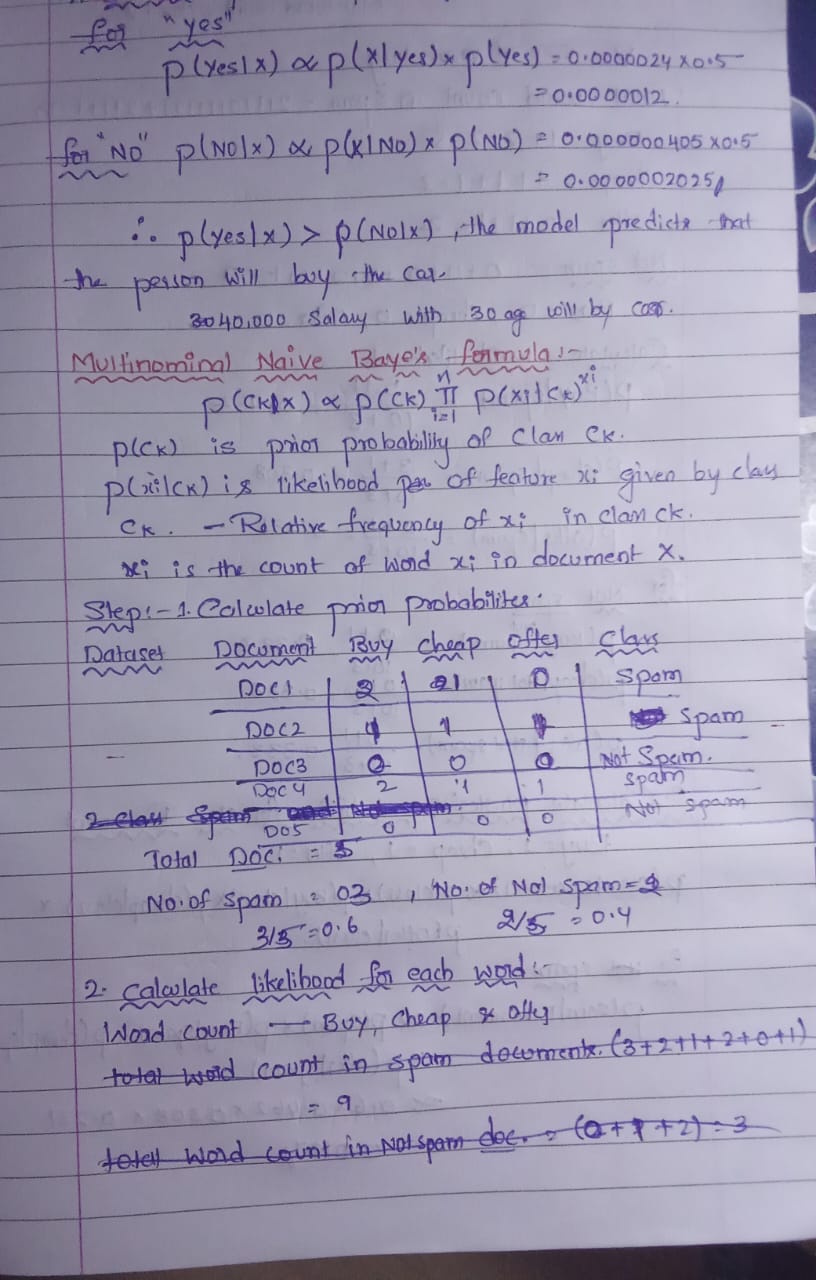 for "yes"
P(yes|x) ∝ P(x|yes) × P(yes) = 0.0000024 × 0.5
= 0.0000012.
for "NO" P(NO|x) ∝ P(x|NO) × P(NO) = 0.000000405 × 0.5
= 0.0000002025
∴ P(yes|x) > P(NO|x), the model predicts that
the person will buy the car.
40,000 Salary with 30 age will by car.
Multinominal Naive Baye's formula :-
P(CK|x) ∝ P(CK) n π i=1 P(xi|CK)^xi
P(CK) is prior probability of Class CK.
P(xi|CK) is likelihood of feature xi given by class
CK. - Relative frequency of xi in class CK.
xi is the count of word xi in document X.
Step :- 1. Calculate prior probabilites.
Dataset Document Buy Cheap Offer Class
DOC1 0 Spam
DOC2 1 Spam
DOC3 0 0 0 Not Spam.
DOC4 2 1 1 Spam
2 Class Spam and Not spam.
DO5 0 0 0 Not Spam
Total Doc. = 5
No. of spam = 03, No. of Not spam = 2
3/5 = 0.6 2/5 = 0.4
2. Calculate likelihood for each word :-
Word count → Buy, Cheap & offer
total word count in spam documents. (3+2+1+2+0+1)
= 9
total word count in Not spam doc. = (0+1+2) = 3